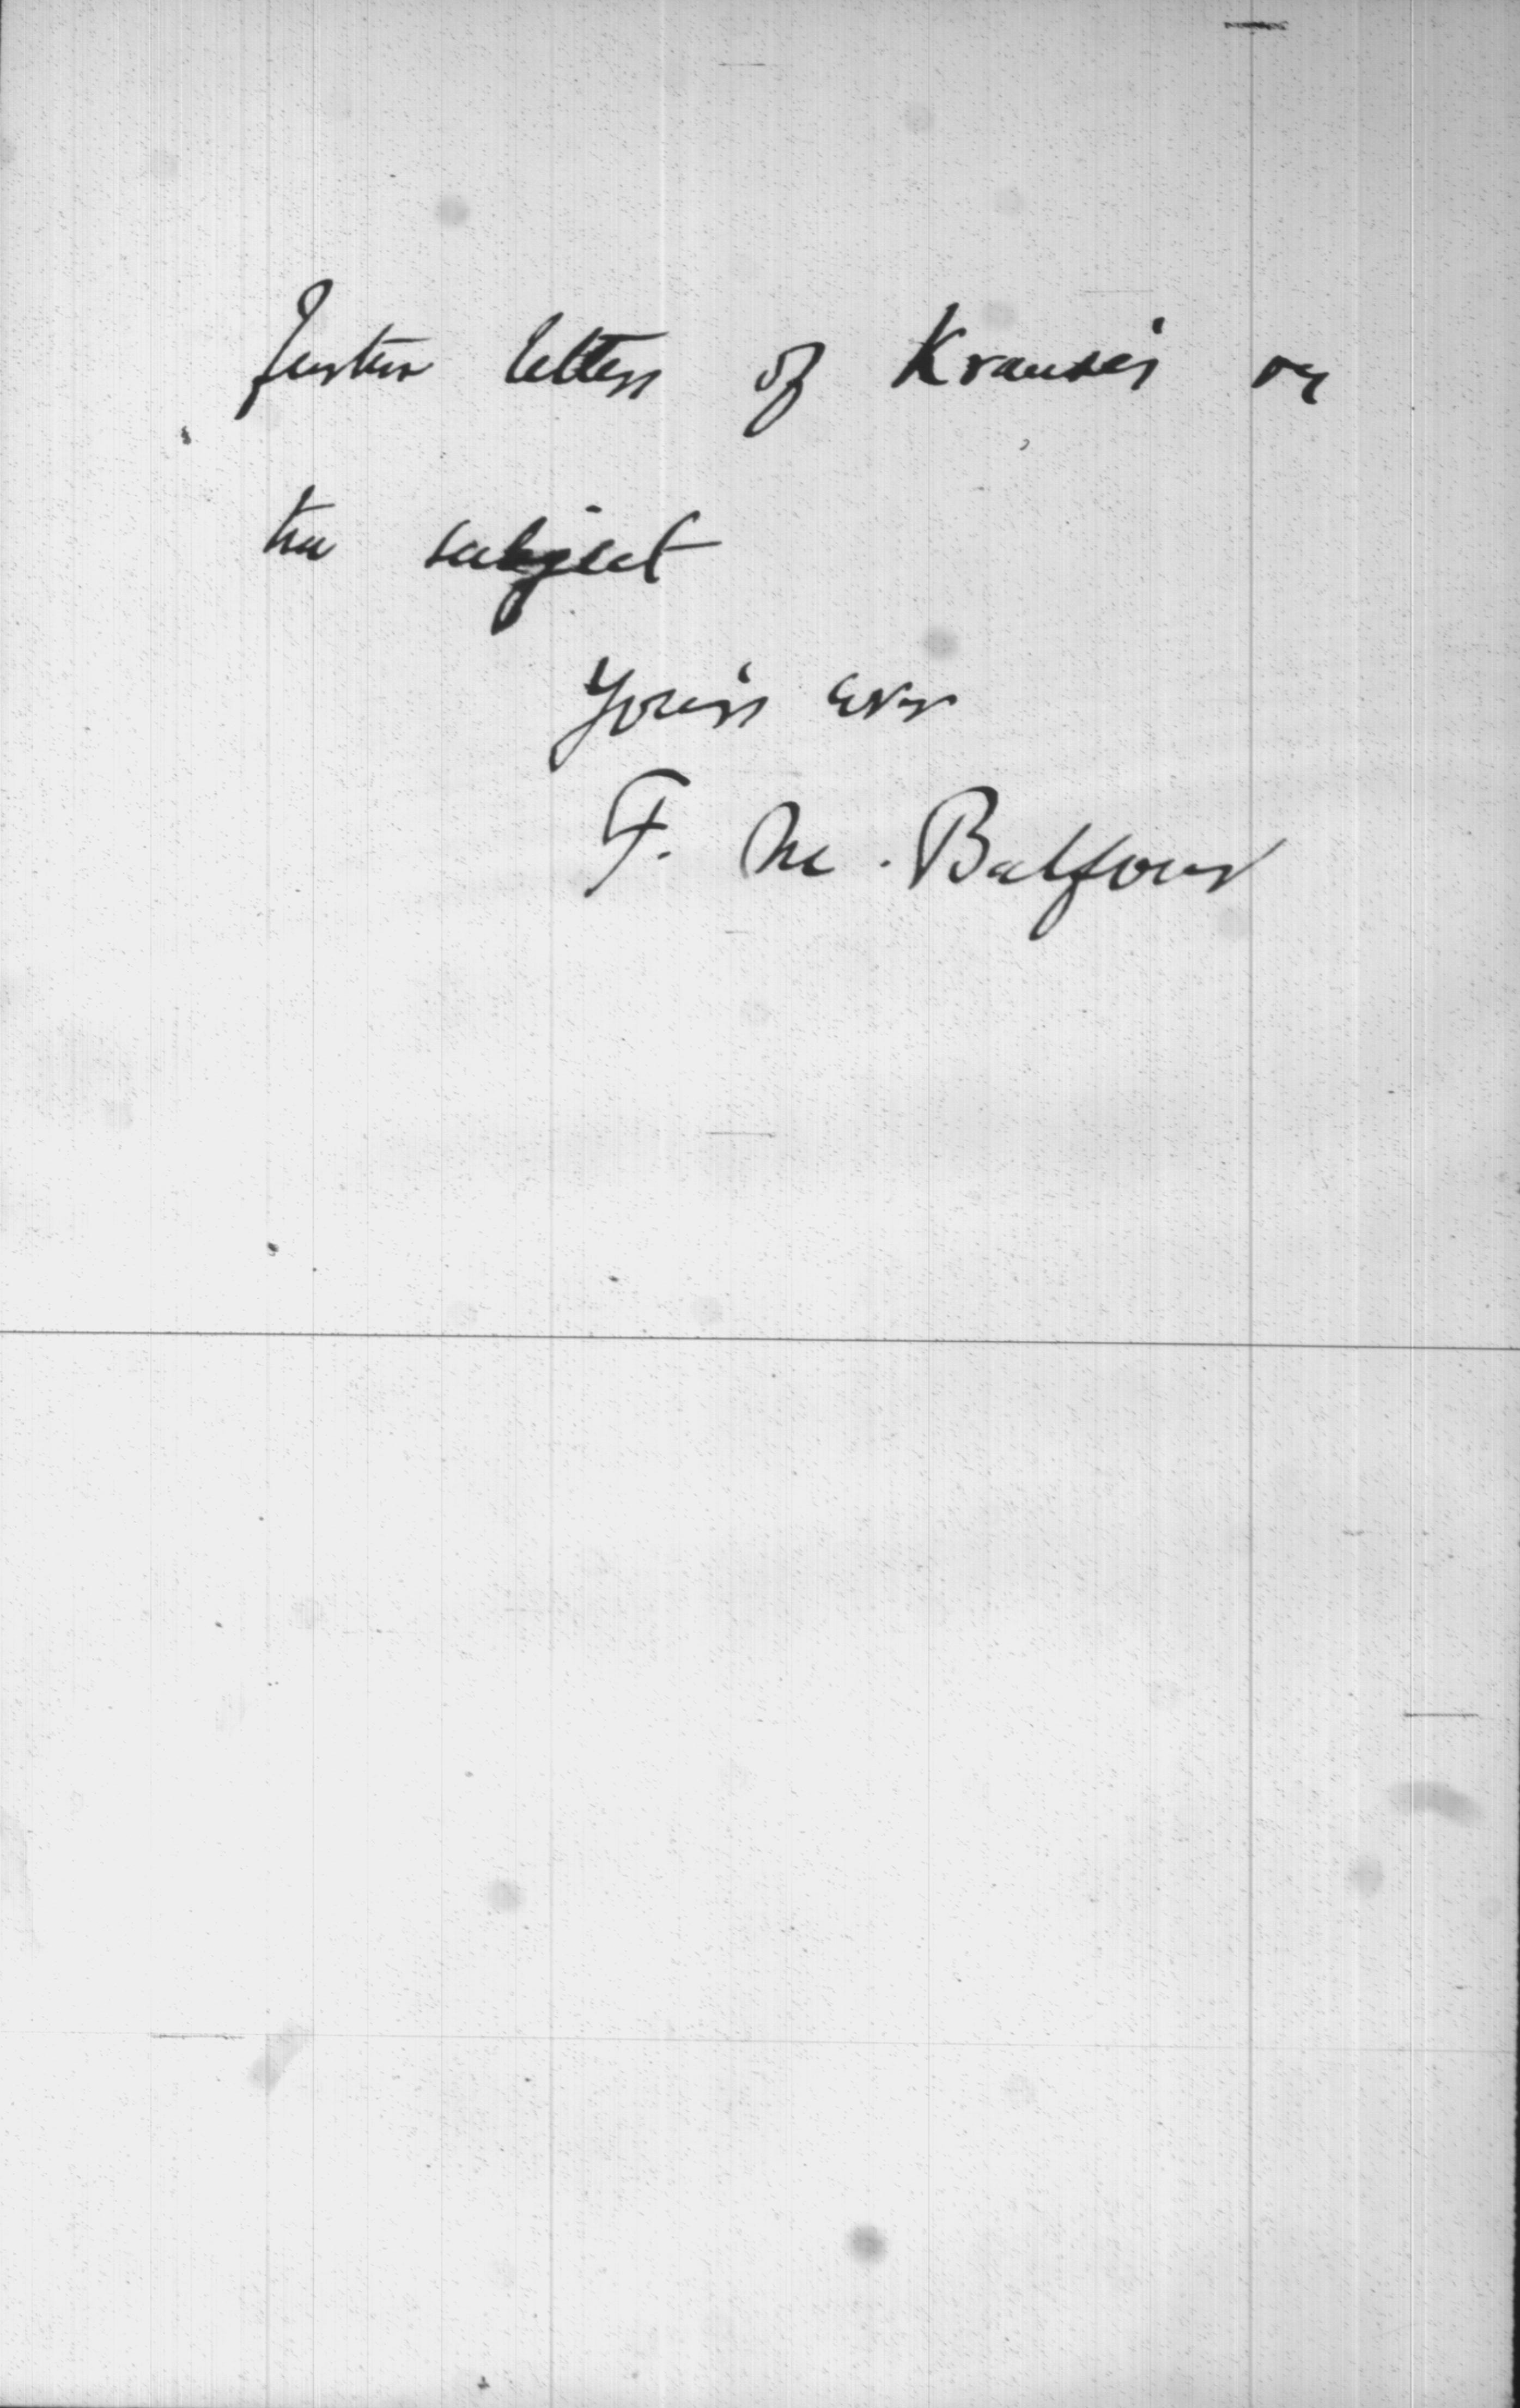 further letters of Krause's on
the subject
Your's ever
F. M. Balfour